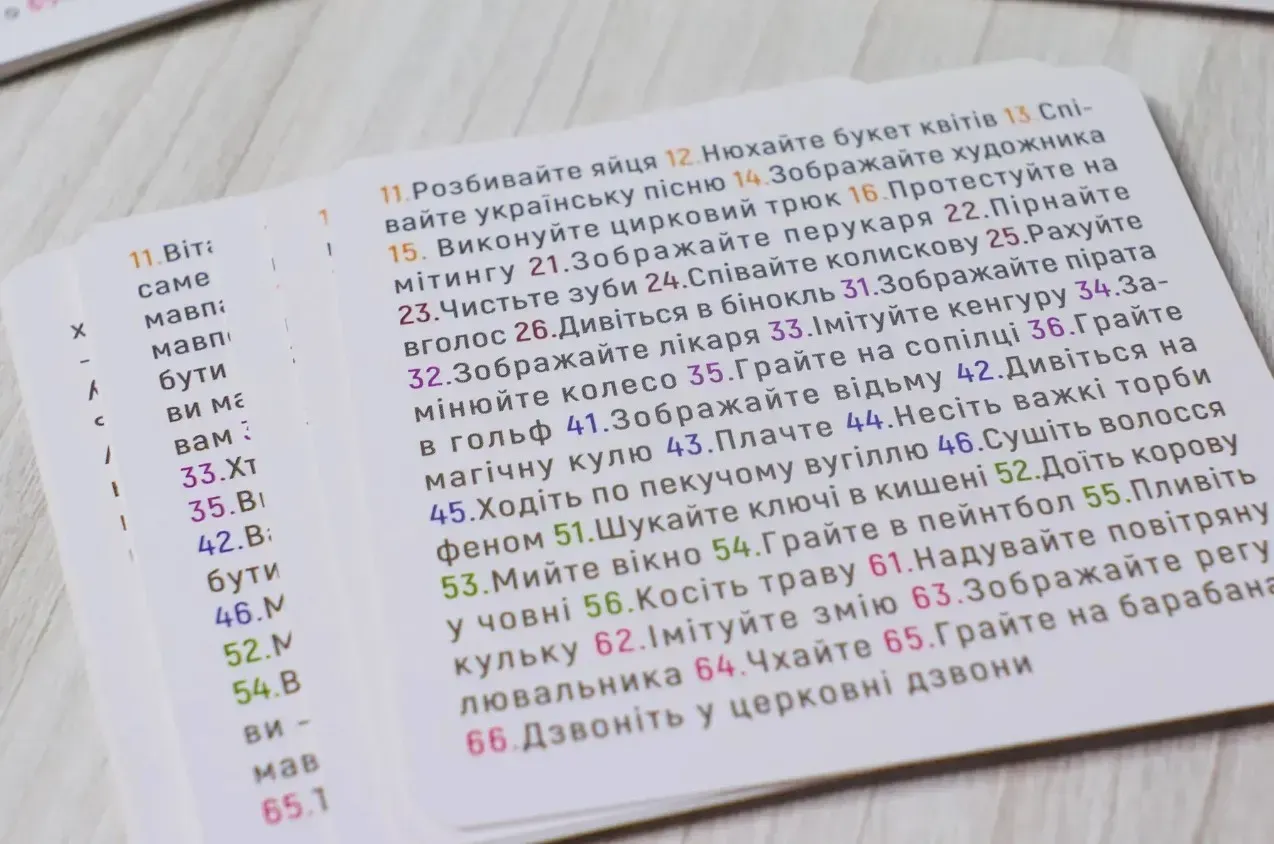 11.Розбивайте яйця 12.Нюхайте букет квітів 13.Спі-
вайте українську пісню 14.Зображайте художника
15. Виконуйте цирковий трюк 16.Протестуйте на
мітингу 21.Зображайте перукаря 22.Пірнайте
23.Чистьте зуби 24.Співайте колискову 25.Рахуйте
вголос 26.Дивіться в бінокль 31.Зображайте пірата
32.Зображайте лікаря 33.Імітуйте кенгуру 34.За-
мінюйте колесо 35.Грайте на сопілці 36.Грайте
в гольф 41.Зображайте відьму 42.Дивіться на
магічну кулю 43.Плачте 44.Несіть важкі торби
45.Ходіть по пекучому вугіллю 46.Сушіть волосся
феном 51.Шукайте ключі в кишені 52.Доїть корову
53.Мийте вікно 54.Грайте в пейнтбол 55.Пливіть
у човні 56.Косіть траву 61.Надувайте повітряну
кульку 62.Імітуйте змію 63.Зображайте регу
лювальника 64.Чхайте 65.Грайте на барабана
66.Дзвоніть у церковні дзвони
11.Віта
саме
мавпа
мавп
бути
ви ма
вам
33.Хт
35.Ві
42.Ва
бути
46.М
52.М
54.В
ви -
мав
65.Т